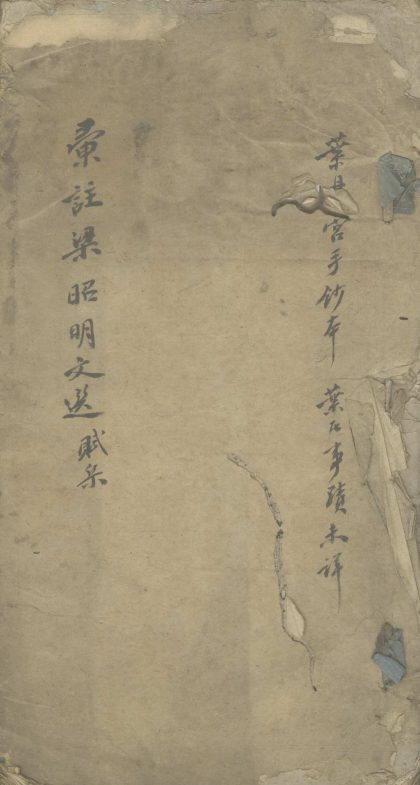 葉月宮手鈔本　葉君事蹟未詳
彙註梁昭明文選賦集